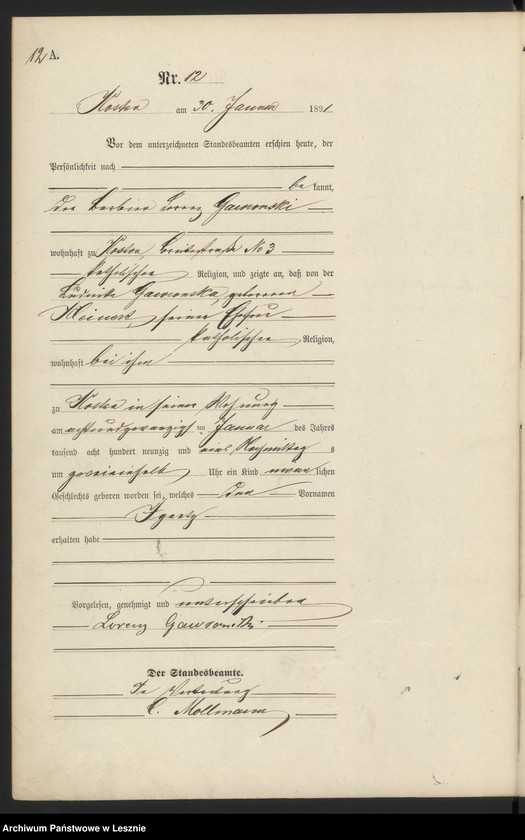 12 A.
Nr. 12
am 30. Januar 1891
Vor dem unterzeichneten Standesbeamten erschien heute, der
Persönlichkeit nach
be kannt,
der Barbier Lorenz
wohnhaft zu No 3
katholischer Religion, und zeigte an, daß von der
Ludwika geborenen
seiner Ehefrau
katholischer Religion,
wohnhaft bei ihm
zu in seiner Wohnung
am achtundzwanzigsten Januar des Jahres
tausend acht hundert neunzig und eins Nachmittags
um Uhr ein Kind männlichen
Geschlechts geboren worden sei, welches den Vornamen
Ignatz
erhalten habe
Vorgelesen, genehmigt und unterschrieben
Lorenz
Der Standesbeamte.
In Vertretung
C. Mollmann
Archiwum Państwowe w Lesznie